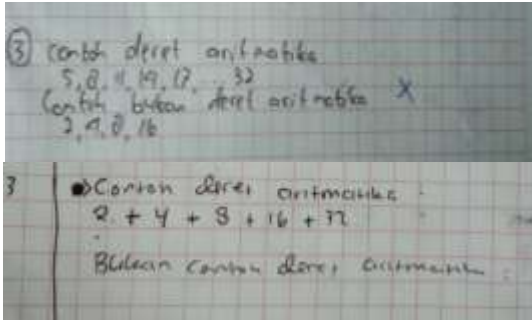 ③ Contoh deret aritmatika
5, 8, 11, 14, 17, ... 32
Contoh bukan deret aritmatika X
2, 4, 8, 16
3 Contoh deret aritmatika :
2 + 4 + 8 + 16 + 32
Bukan contoh deret aritmatika :